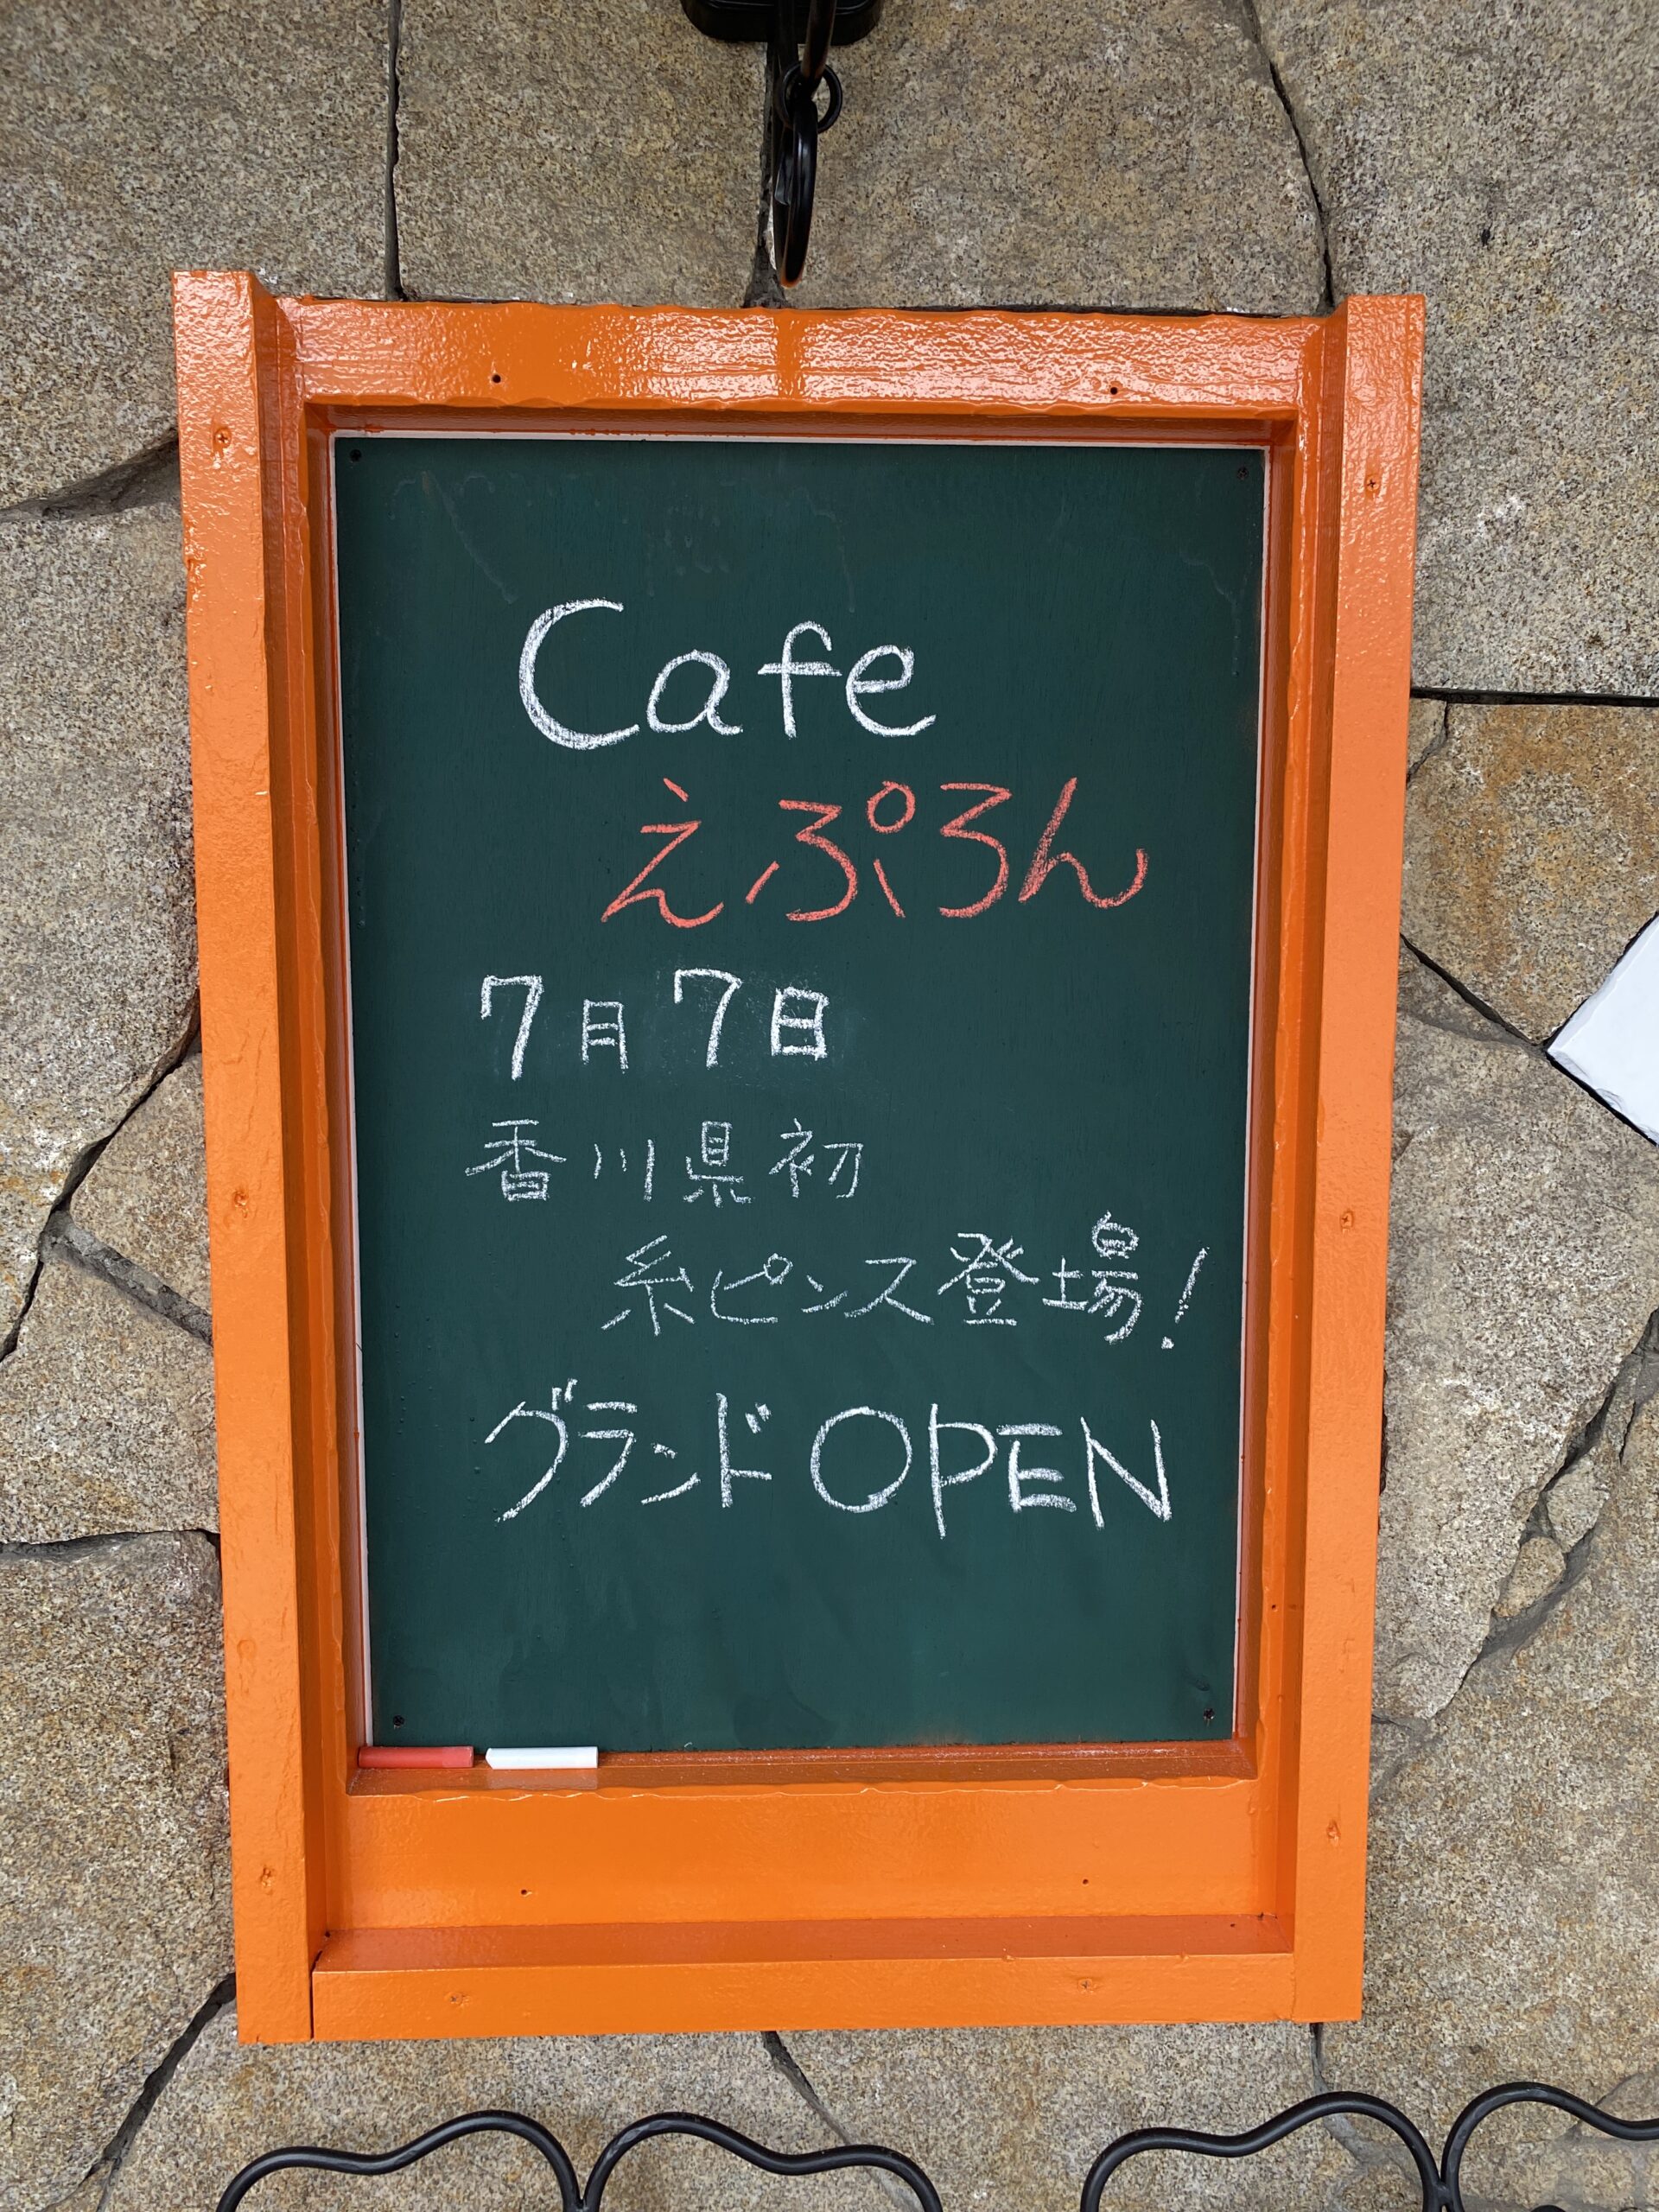 Cafe
えぷろん
7月7日
香川県初
糸ピンス登場!
グランドOPEN